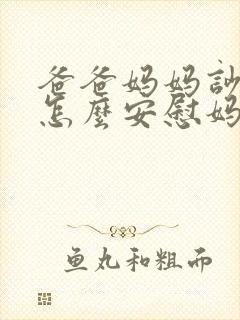 爸爸妈妈訁
怎麼安慰妈
鱼丸和粗而